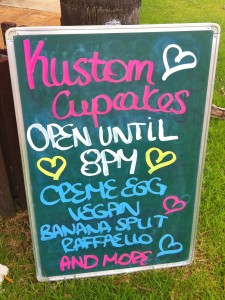 Kustom
Cupcakes
OPEN UNTIL
8PM
CREME EGG
VEGAN
BANANA SPLIT
RAFFAELLO
AND MORE